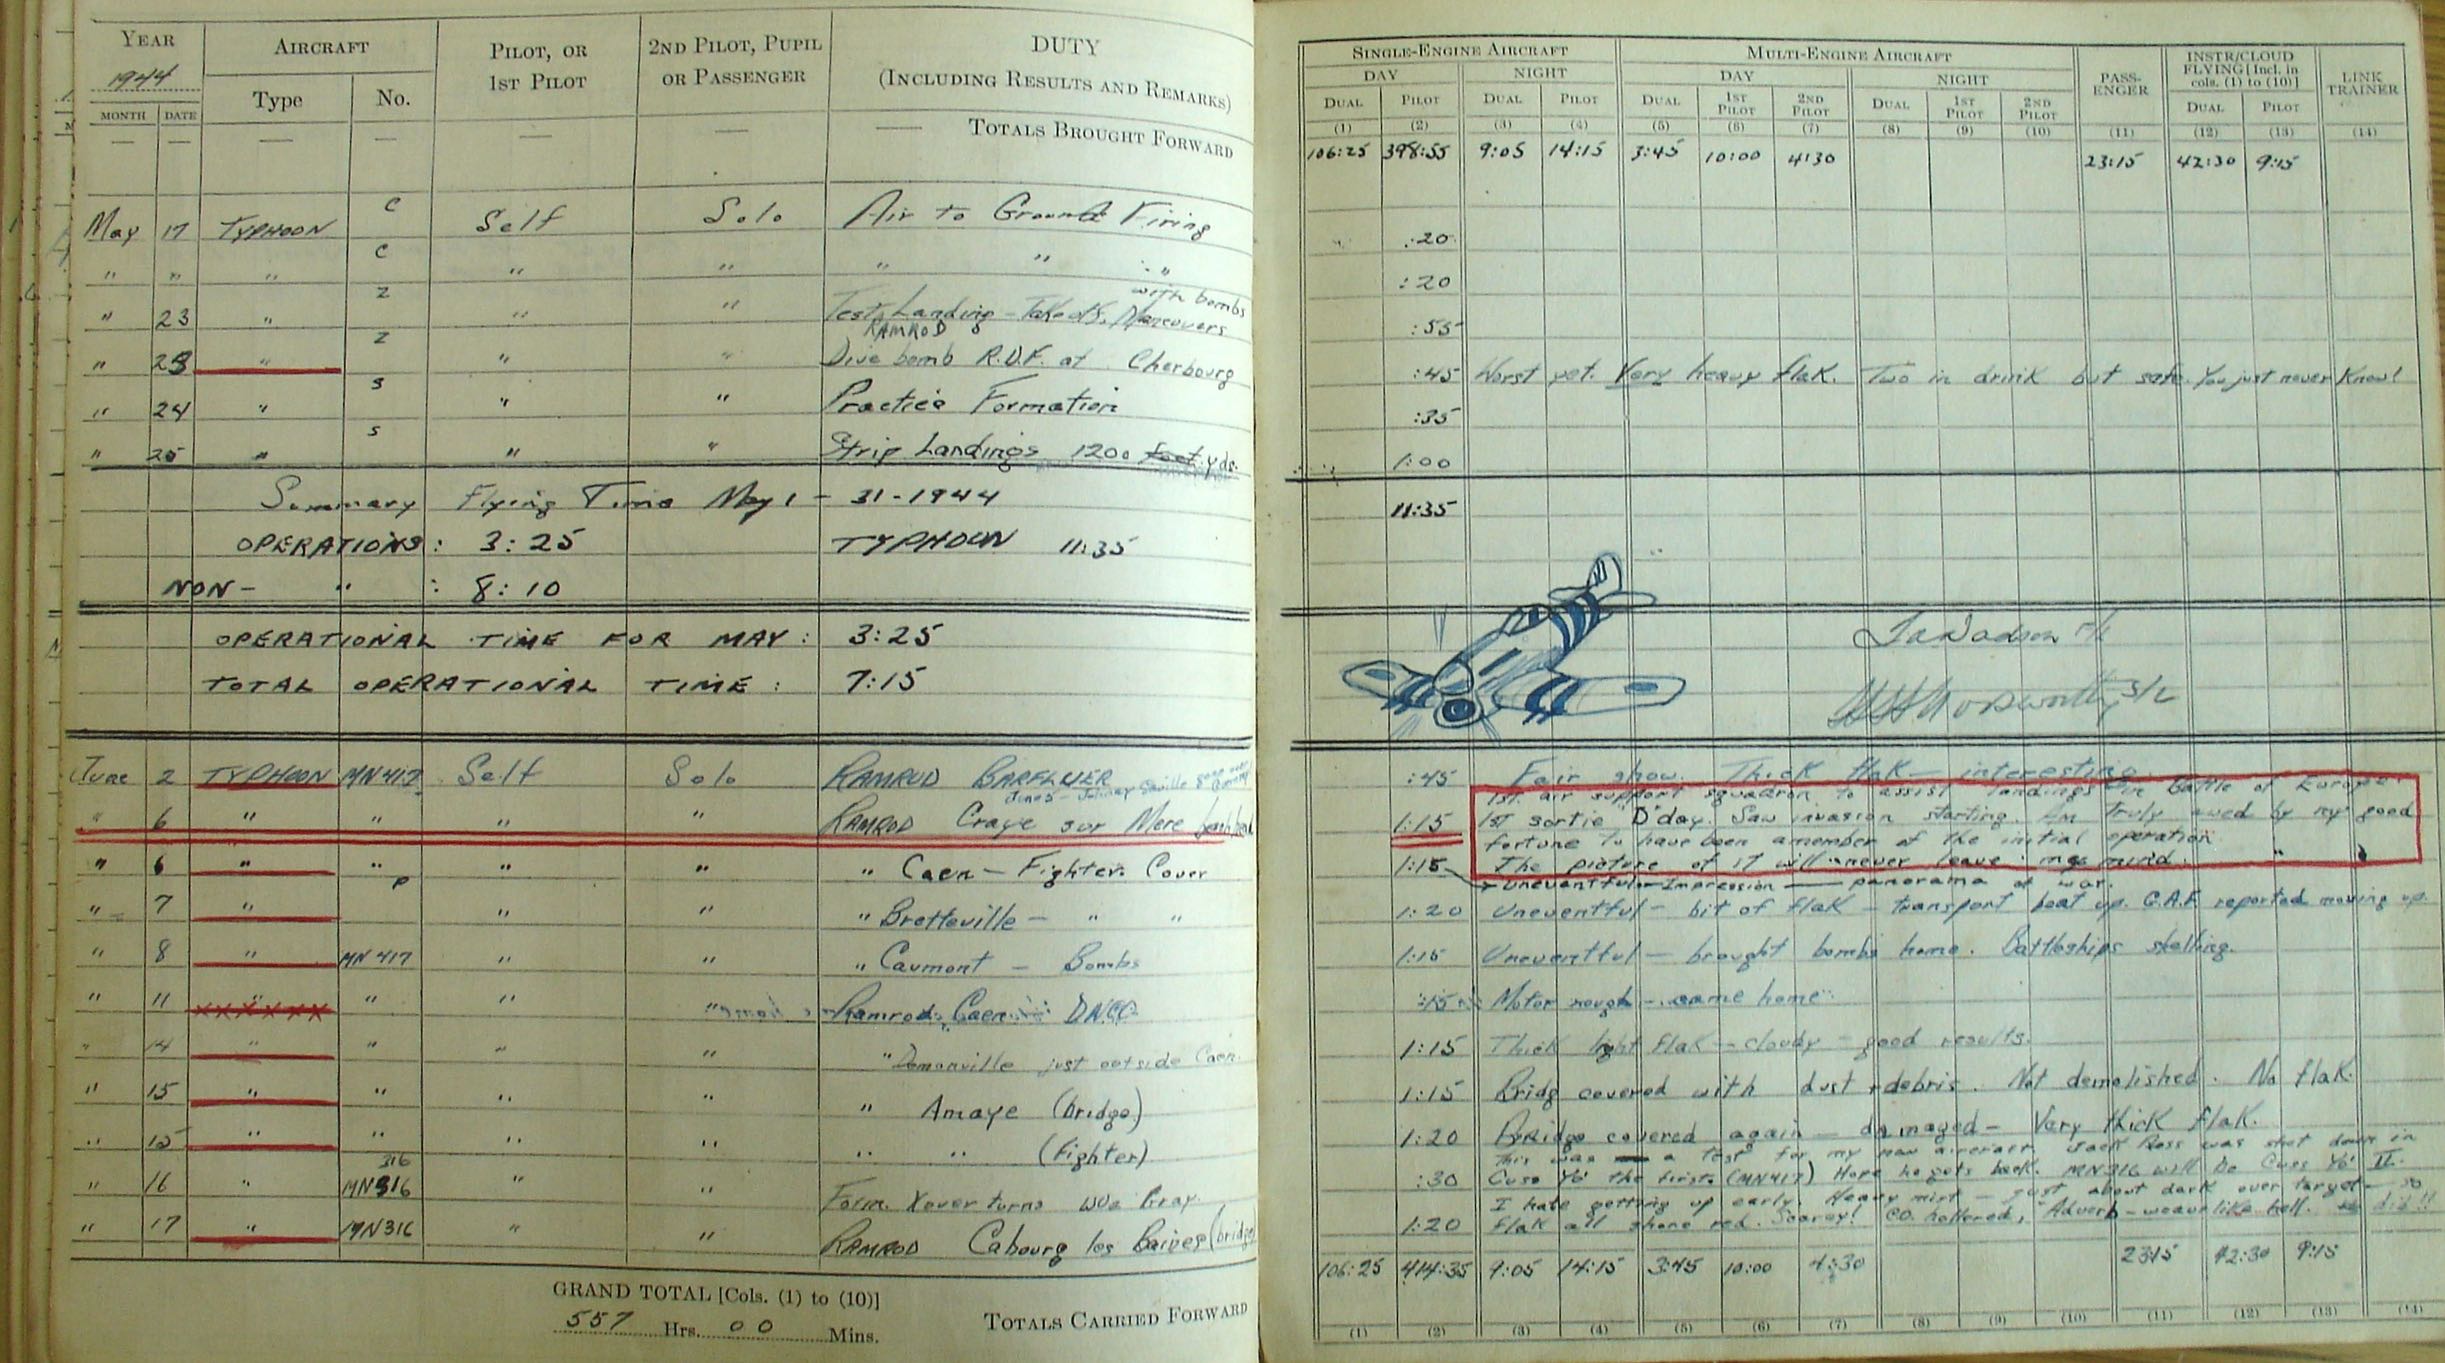 YEAR AIRCRAFT PILOT, OR 2ND PILOT, PUPIL DUTY
1944 1ST PILOT OR PASSENGER (INCLUDING RESULTS AND REMARKS)
MONTH DATE Type No.
— — — — — — — TOTALS BROUGHT FORWARD
May 17 TYPHOON C Self Solo Air to Ground Firing
" " " C " " " " "
" 23 " Z " " Test, Landing - Takeoffs, Maneuvers with bombs
" 23 " Z " " RAMROD Dive bomb R.D.F. at Cherbourg
" 24 " S " " Practice Formation
" 25 " S " " Strip Landings 1200 feet yds.
Summary Flying Time May 1 - 31 - 1944
OPERATIONS: 3:25 TYPHOON 11:35
NON- " : 8:10
OPERATIONAL TIME FOR MAY: 3:25
TOTAL OPERATIONAL TIME: 7:15
June 2 TYPHOON MN417 Self Solo RAMROD BARFLUER
" 6 " " " " RAMROD Craye sur Mere beach head
" 6 " " " " " Caen - Fighter Cover
" 7 " P " " " Bretteville - " "
" 8 " MN417 " " " Caumont - Bombs
" 11 " " " " Ramrod, Caen DNCO
" 14 " " " " " Demanville just outside Caen.
" 15 " " " " " Amaye (bridge)
" 15 " " " " " " (fighter)
" 16 " 316 MN316 " " Form. Xover turns
" 17 " MN316 " " RAMROD Cabourg les Baines (bridge)
GRAND TOTAL [Cols. (1) to (10)]
557 Hrs. 00 Mins.
TOTALS CARRIED FORWARD
SINGLE-ENGINE AIRCRAFT MULTI-ENGINE AIRCRAFT PASS-ENGER INSTR/CLOUD FLYING [Incl. in cols. (1) to (10)] LINK TRAINER
DAY NIGHT DAY NIGHT
DUAL PILOT DUAL PILOT DUAL 1ST PILOT 2ND PILOT DUAL 1ST PILOT 2ND PILOT DUAL PILOT
(1) (2) (3) (4) (5) (6) (7) (8) (9) (10) (11) (12) (13) (14)
106:25 398:55 9:05 14:15 3:45 10:00 4:30 23:15 42:30 9:15
:20
:20
:55
:45 Worst yet. Very heavy flak. Two in drink but safe. You just never Know!
:35
1:00
11:35
:45 Fair show. Thick flak - interesting.
1st. air support squadron to assist landings in battle of Europe.
1:15 1st sortie D'day. Saw invasion starting. Am Truly awed by my good
fortune to have been a member of the initial operation.
The picture of it will never leave my mind.
1:15 Uneventful - Impression — panorama of war.
1:20 Uneventful - bit of flak - transport beat up. G.A.F. reported moving up.
1:15 Uneventful - brought bombs home. Battleships shelling.
:15 Motor rough - came home.
1:15 Thick light flak - cloudy - good results.
1:15 Bridg covered with dust + debris. Not demolished. No flak.
1:20 Bridge covered again - damaged - Very thick flak.
This was a test for my new aircraft. Jack Ross was shot down in
:30 Cuss Yo' the first. (MN417) Hope he gets back. MN316 will be Cuss Yo' II.
I hate getting up early. Heavy mist - just about dark over target - so
1:20 flak all shone red. Scarey! CO. hollered, "Adverb - weave like hell. did!!
106:25 414:35 9:05 14:15 3:45 10:00 4:30 23:15 42:30 9:15
(1) (2) (3) (4) (5) (6) (7) (8) (9) (10) (11) (12) (13) (14)